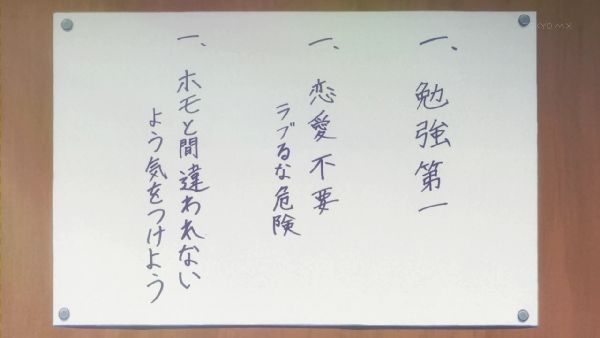 一、勉強第一
一、恋愛不要
ラブるな危険
一、ホモと間違われない
よう気をつけよう
TOKYO MX